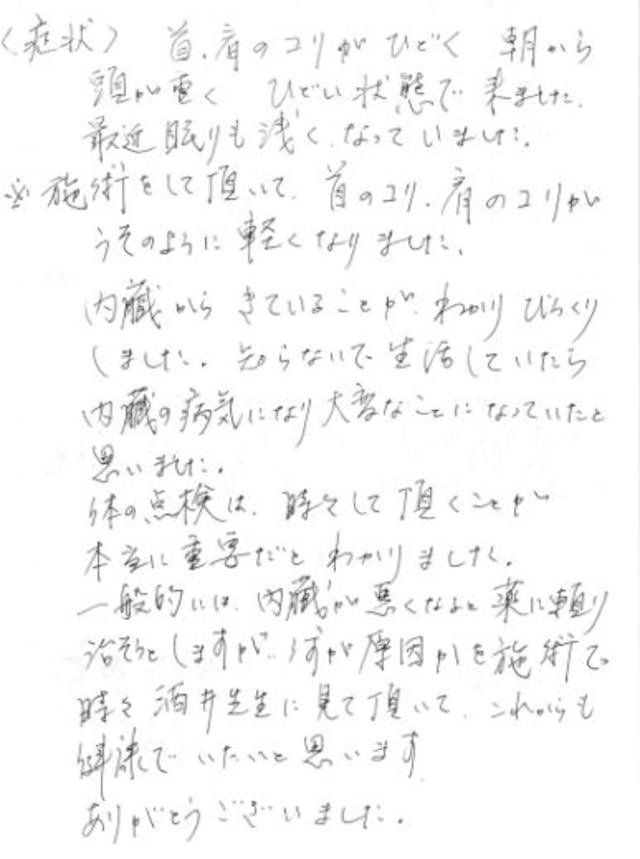 〈症状〉 首、肩のコリがひどく 朝から
頭が重く ひどい状態で来ました。
最近眠りも浅く、なっていました。
※施術をして頂いて、首のコリ、肩のコリが
うそのように軽くなりました。
内蔵からきていることが、わかりびっくり
しました。知らないで生活していたら
内蔵の病気になり大変なことになっていたと
思いました。
体の点検は、時々して頂くことが
本当に重要だとわかりました。
一般的には、内蔵が悪くなると薬に頼り
治そうとしますが、 原因かを施術で
時々酒井先生に見て頂いて、これからも
健康でいたいと思います
ありがとうございました。